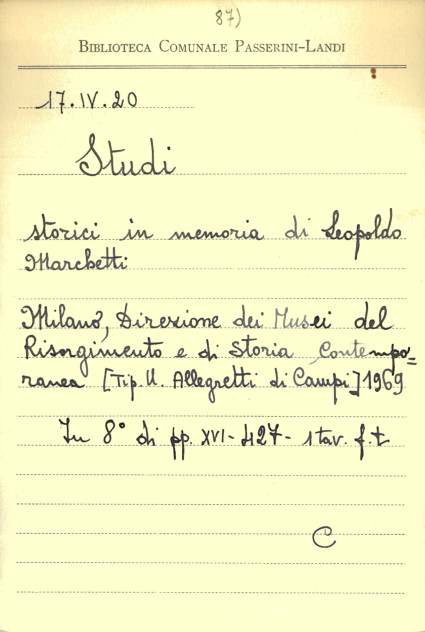 87)
BIBLIOTECA COMUNALE PASSERINI-LANDI
17.IV.20
Studi
storici in memoria di Leopoldo
Marchetti
Milano, Direzione dei Musei del
Risorgimento e di Storia Contempo=
ranea [Tip. U. Allegretti di Campi] 1969
In 8° di pp. XVI-427-1 tav. f.t
C